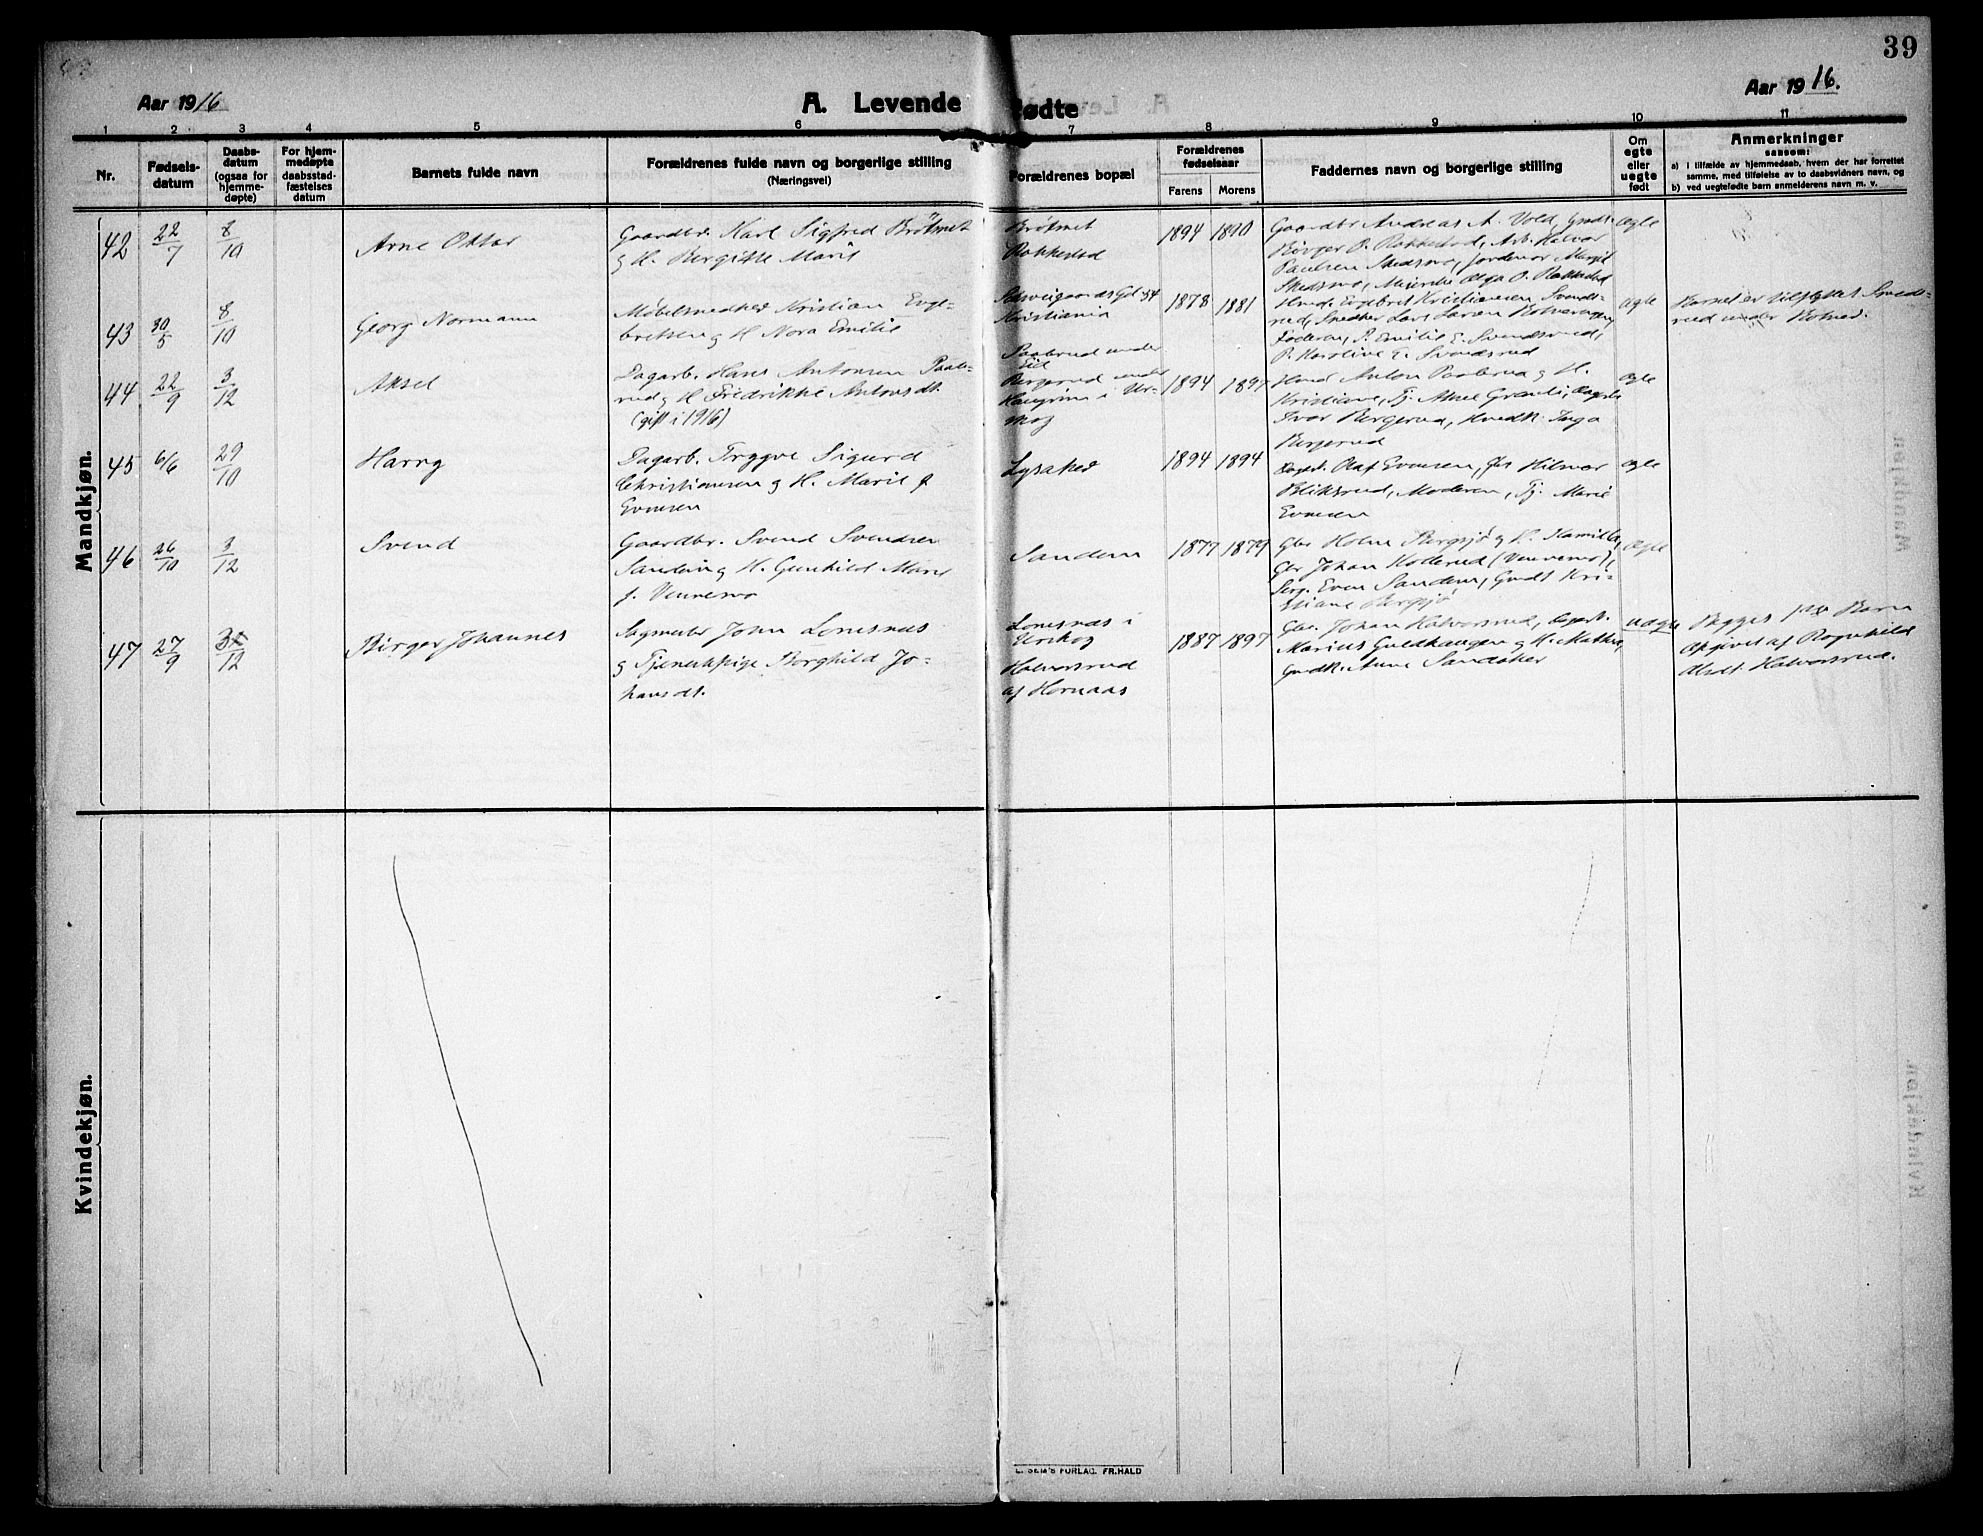 39
Aar 1916
A. Levende fødte
Aar 1916.
1 2 3 4 5 6 7 8 9 10 11
Nr.
Fødsels-
datum
Daabs-
datum
(ogsaa for
hjemme-
døpte)
For hjem-
medøpte
daabsstad-
fæstelses
datum
Barnets fulde navn
Forældrenes fulde navn og borgerlige stilling
(Næringsvei)
Forældrenes bopæl
Forældrenes
fødselsaar
Farens Morens
Faddernes navn og borgerlige stilling
Om
egte
eller
uegte
født
Anmerkninger
saasom:
a) i tilfælde av hjemmedaab, hvem der har forrettet
samme, med tilføielse av to daabsvidners navn, og
b) ved uegtefødte barn anmelderens navn m. v.
Mandkjøn.
42 22/7 8/10
Arne Ottar
Gaardbr. Karl Sigfred Brötmet
og H. Bergitte Marie
Brötmet
Rakkestad
1894 1890
Gaardbr Andreas A. Vold, Gmdr.
Börger P. Rakkestad, Arb. Halvor
Paulsen Skedsmo, Jordmor Margit
Skedsmo, Meierske Olga P. Rakkestad
ægte
43 30/5 8/10
Georg Normann
Møbelsnedker Kristian Enge-
bretsen og H Nora Emilie
Schweigaards Gd. 54
Kristiania
1878 1881
Hmd. Engebret Kristiansen Svends-
rud, Snedker Lars Larsen
Faderen, P. Emilie E. Svendsrud,
P. Karoline E. Svendsrud
ægte
Barnet er tilflyttet
rud under
44 22/9 3/12
Aksel
Dagarb. Hans Antonsen Paale-
rud og H Fredrikke Antonsdt.
(gift i 1916)
Paalerud under
Eid
Bergerud under
Haugrim i Ur-
skog
1894 1897
Hmd Anton Paalerud og H.
Kristiane, Tj. Aksel Granli, Dagarb
Ivar Bergerud, Hmdk. Inga
Bergerud
ægte
45 6/6 29/10
Harry
Dagarb. Trygve Sigurd
Christiansen og H. Marie f.
Evensen
Lysaker
1894 1894
Dagarb. Olaf Evensen, Hilmar
Bliksrud, Moderen, Tj. Marie
Evensen
ægte
46 26/10 3/12
Svend
Gaardbr. Svend Svendsen
Sandem og H. Gunhild Marie
f. Vennesmo
Sandem
1877 1879
Gbr Holm Bergsjö og H. Kamilla,
Gbr Johan Kollerud (Vennesmo),
Serg. Even Sandem, Gmdt Kri-
stiane Bergsjö
ægte
47 27/9 /12
Birger Johannes
Sagmester John Lonesnæs
og Tjenestepige Borghild Jo-
hansdt.
Lonesnæs i
Urskog
Halvorsrud
af Hornaas
1887 1897
Gbr. Johan Halvorsrud, Dagarb.
Marius Guldhaugen og H. Mathea,
Gmdk. Anne Sandaker
uægte
Begges 1ste Barn
Opgivet af Ragnhild
Olsdt. Halvorsrud.
Kvindekjøn.
E. SEM'S FORLAG. FR.HALD